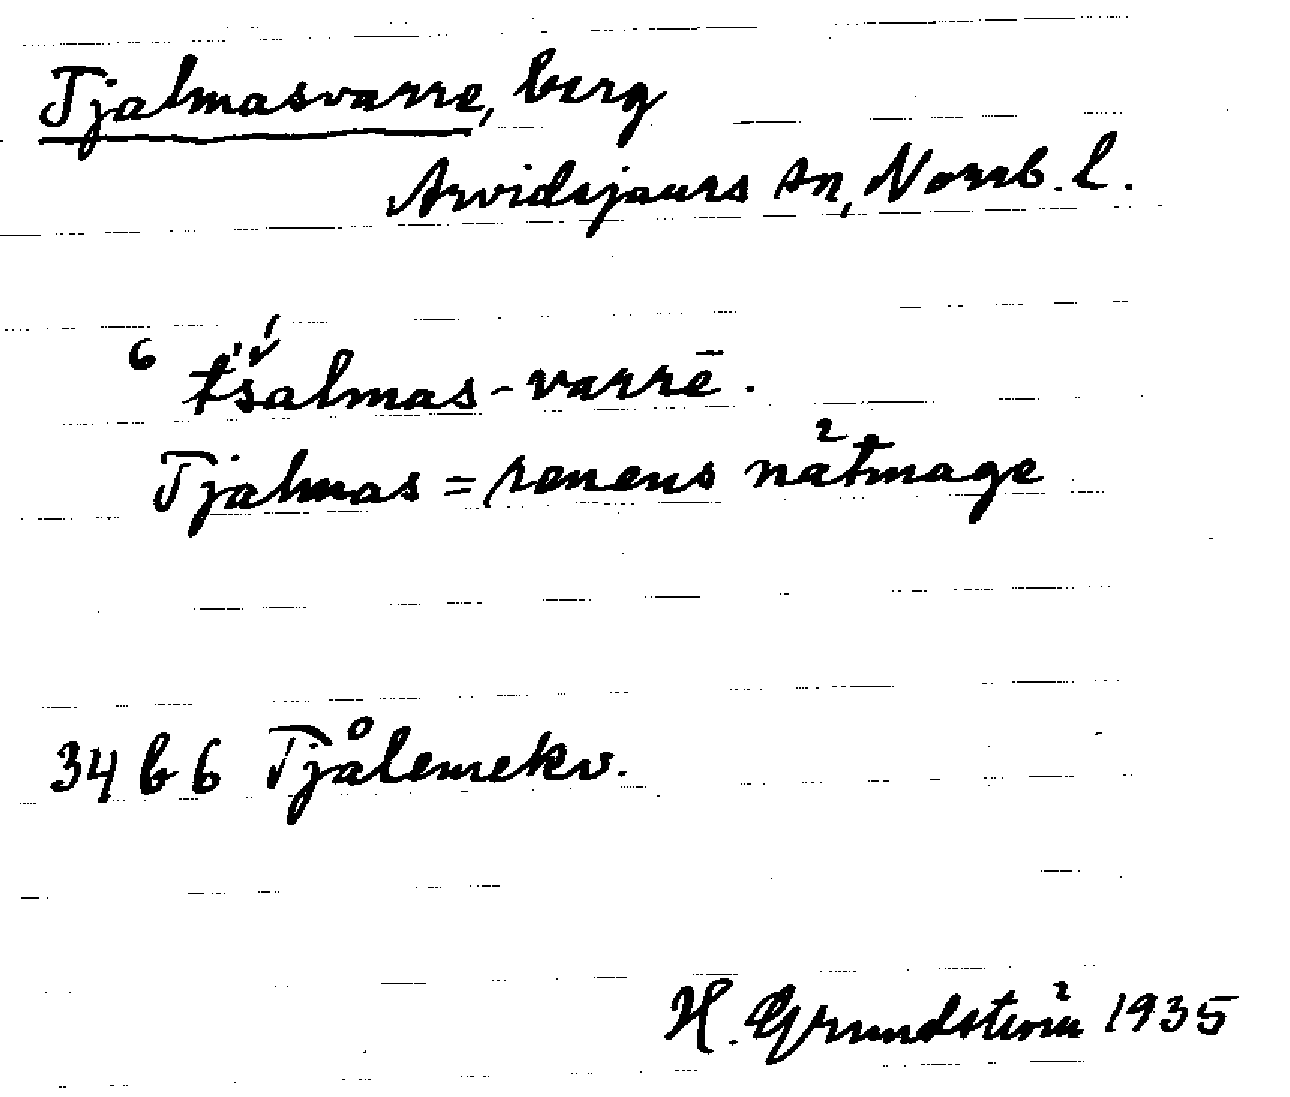 Tjalmasvarre, berg
Arvidsjaurs sn, Norrb. l.
6 tšalmas-varrē.
Tjalmas = renens nätmage
34 b 6 Tjålemekv.
H. Grundström 1935